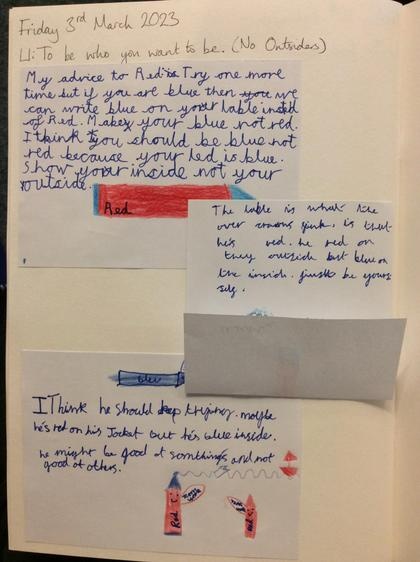 Friday 3rd March 2023
LI: To be who you want to be. (No Outsiders)
My advice to Red is Try one more
time but if you are blue then you we
can write blue on your lable insted
of Red. Makes your blue not red.
I think you should be blue not
red because your led is blue.
Show your inside not your
outside.
Red
The lable is what the
over crayons think, is that
he's red. he red on
they outside but blue on
the inside. just be yours
self.
bleu
I Think he should keep trying. maybe
he's red on his Jacket but he's blue inside.
he might be good at somthings and not
good at others.
Red
Red